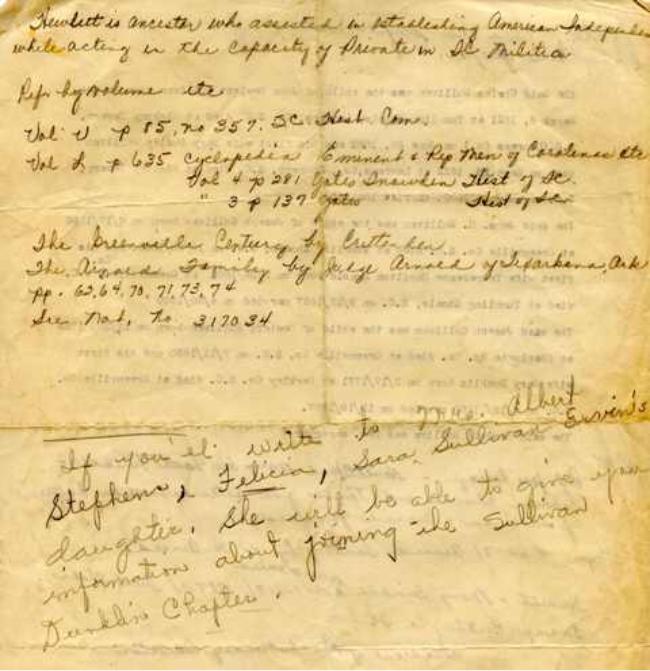 Hewlett is ancestor who assisted in establishing American Independen
while acting in the capacity of Private in SC Militia
Refs. by volume etc
Vol. V p 85, no 357. SC Hist Com.
Vol I, p 635 cyclopedia Eminent & Rep Men of Carolinas etc
Vol 4 p 281 Gates Snowden Hist of SC.
" 3 p 137 Gates Hist of SC.
The Greenville Century by Crittenden
The Arnold Family by Judge Arnold of Texarkana, Ark
pp. 62, 64, 70, 71, 73, 74
See Nat. No. 317034
If you'll write to Mrs. Albert
Stephens, Felicia, Sara Sullivan Ervin's
daughter. She will be able to give you
information about joining the Sullivan
Dunklin Chapter.